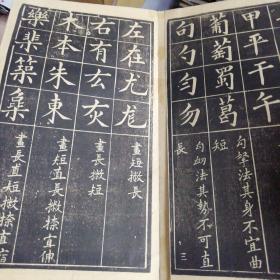 甲平干午
葡萄蜀葛
勾拏法其身不宜曲
短
句勺勻勿
勾幼法其勢不可直
長
三
左在尤尨
畫短撇長
右有玄灰
畫長撇短
木本朱東
畫短直長撇捺宜伸
樂棐築
畫長直短撇捺宜